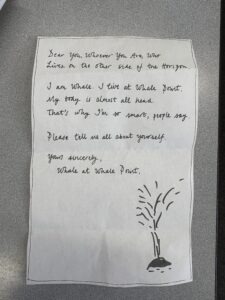 Dear You, Whoever You Are, Who
Lives on the other side of the Horizon

I am Whale. I live at Whale Point.
My body is almost all head.
That's why I'm so smart, people say.

Please tell me all about yourself.

Yours sincerely,
Whale at Whale Point.